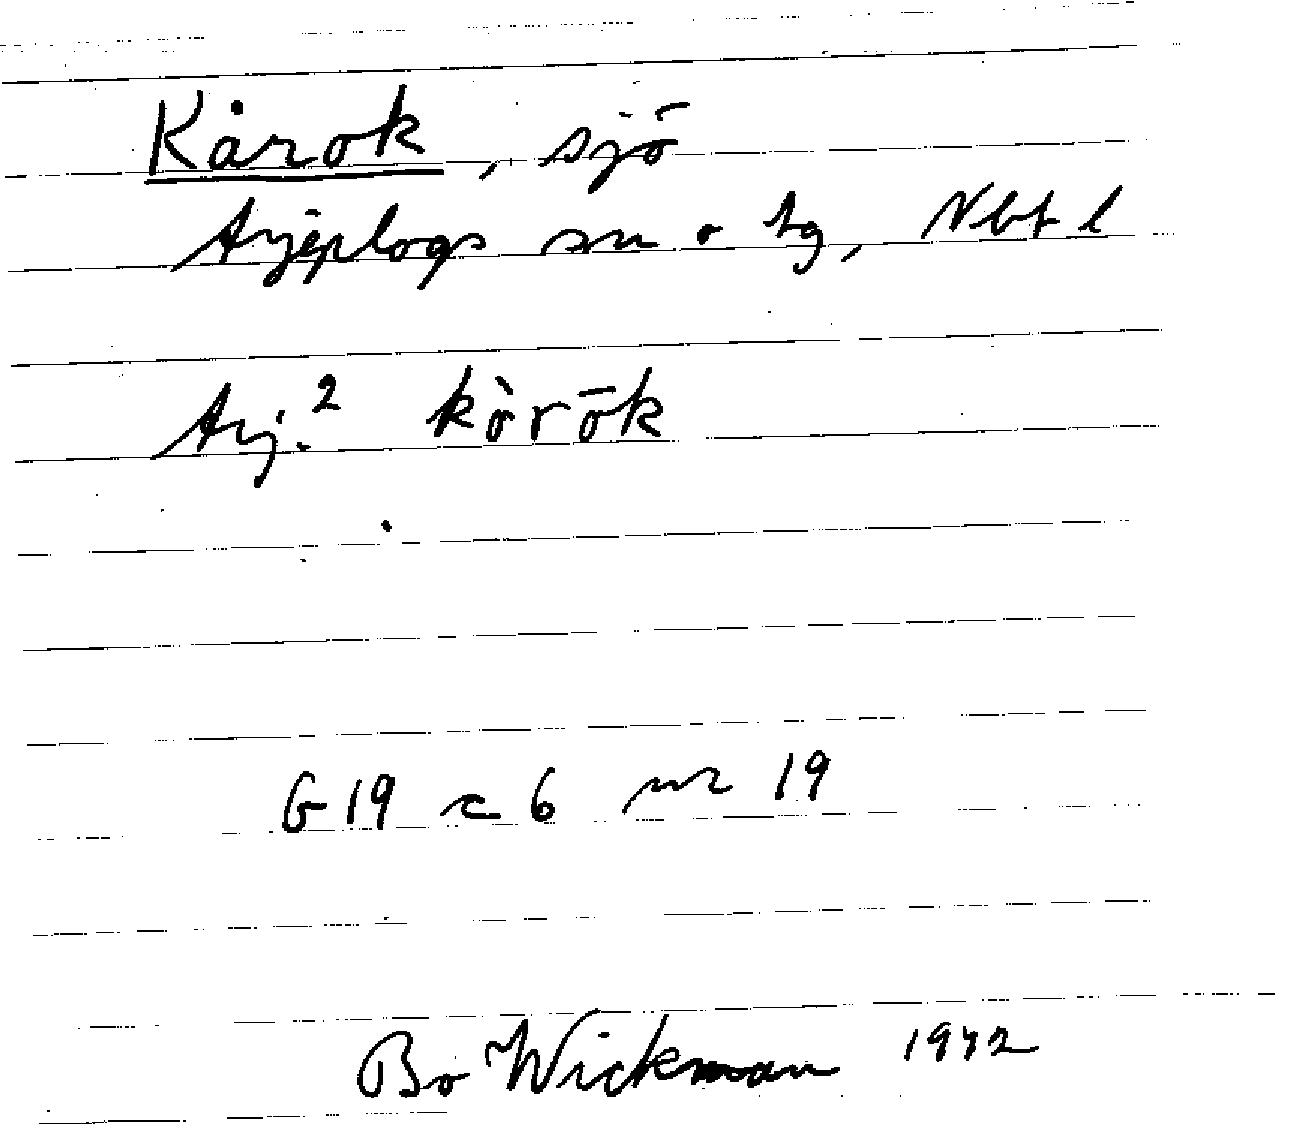 Kårok, sjö
Arjeplogs sn o tg, Nbt l
Arj.² kòrōk
G 19 c 6 nr 19
Bo Wickman 1942